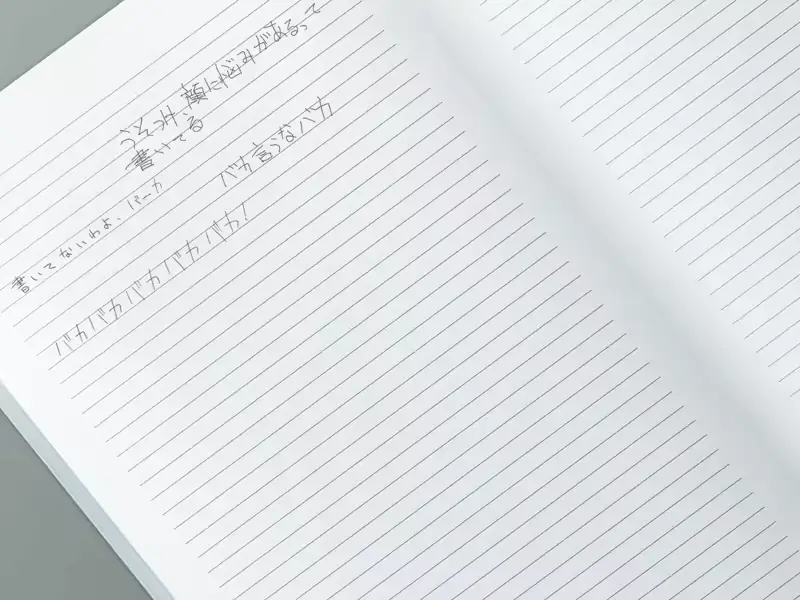 うそつけ、顔に悩みがあるって
書いてる
書いてないわよ、バーカ
バカ言うなバカ
バカバカバカバカバカ!